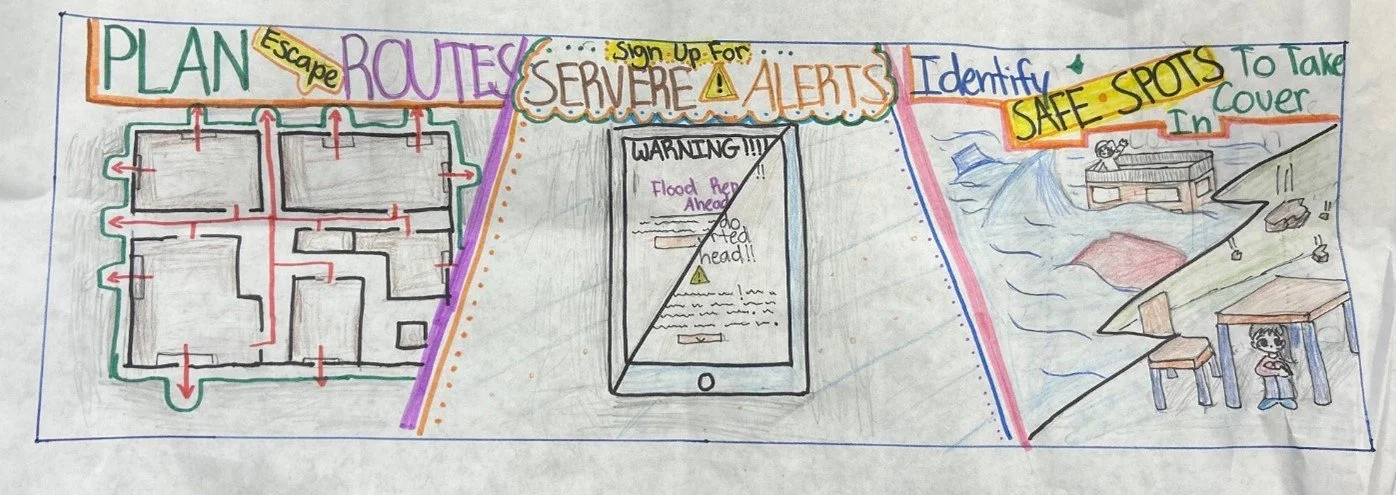 PLAN
Escape
ROUTES
Sign Up For
SERVERE ALERTS
WARNING!!!!
!!
Flood Rep
Ahead
do
rted
head!!
Identify
SAFE SPOTS
To Take
Cover
In